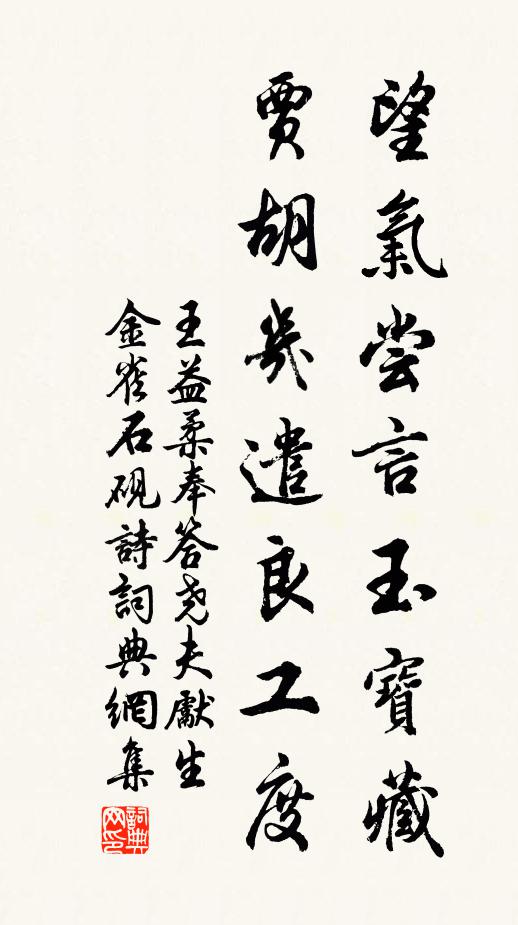 望氣嘗言玉寶藏
賈胡幾遣良工度
王益柔奉答尧夫獻生
金雀石硯詩詞典網集
詞典
网印